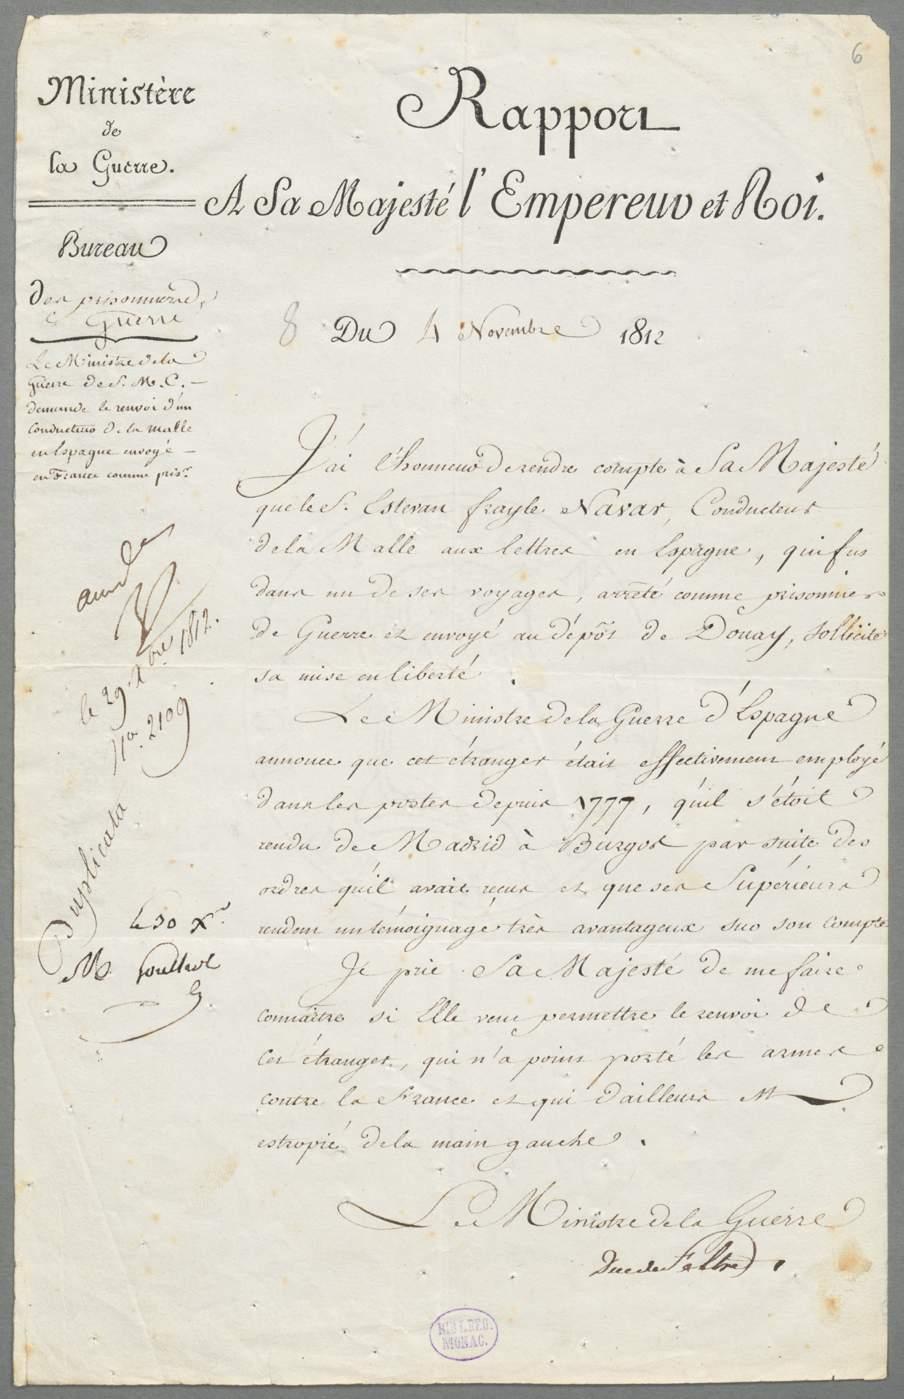 6
Ministère
de
la Guerre.
Bureau
des prisonniers
de Guerre
Le Ministre de la
Guerre de S. M. C. —
demande le renvoi d'un
Conducteur de la malle
en Espagne envoyé —
en France comme pris.er
Rapport
A Sa Majesté l'Empereur et Roi.
8 Du 4 Novembre 1812
J'ai l'honneur de rendre compte à Sa Majesté
que le S. Estevan frayle Navar, Conducteur
de la Malle aux lettres en Espagne, qui fus
dans un de ses voyages, arrêté comme prisonnier
de Guerre et envoyé au dépôt de Douay, sollicite
sa mise en liberté.
Le Ministre de la Guerre d'Espagne
annonce que cet étranger était effectivement employé
dans les postes depuis 1777, qu'il s'étoit
rendu de Madrid à Burgos par suite des
ordres qu'il avait reçus et que ses Supérieurs
rendent un témoignage très avantageux sur son compte
Je prie Sa Majesté de me faire
connaître si Elle veut permettre le renvoi de
Cet étranger, qui n'a point porté les armes
contre la France et qui d'ailleurs est
estropié de la main gauche.
Le Ministre de la Guerre
Duc de Feltre
le 29 Xbre 1812.
2109
Duplicata
le 30 Xr
M
BIBL. REG.
MONAC.